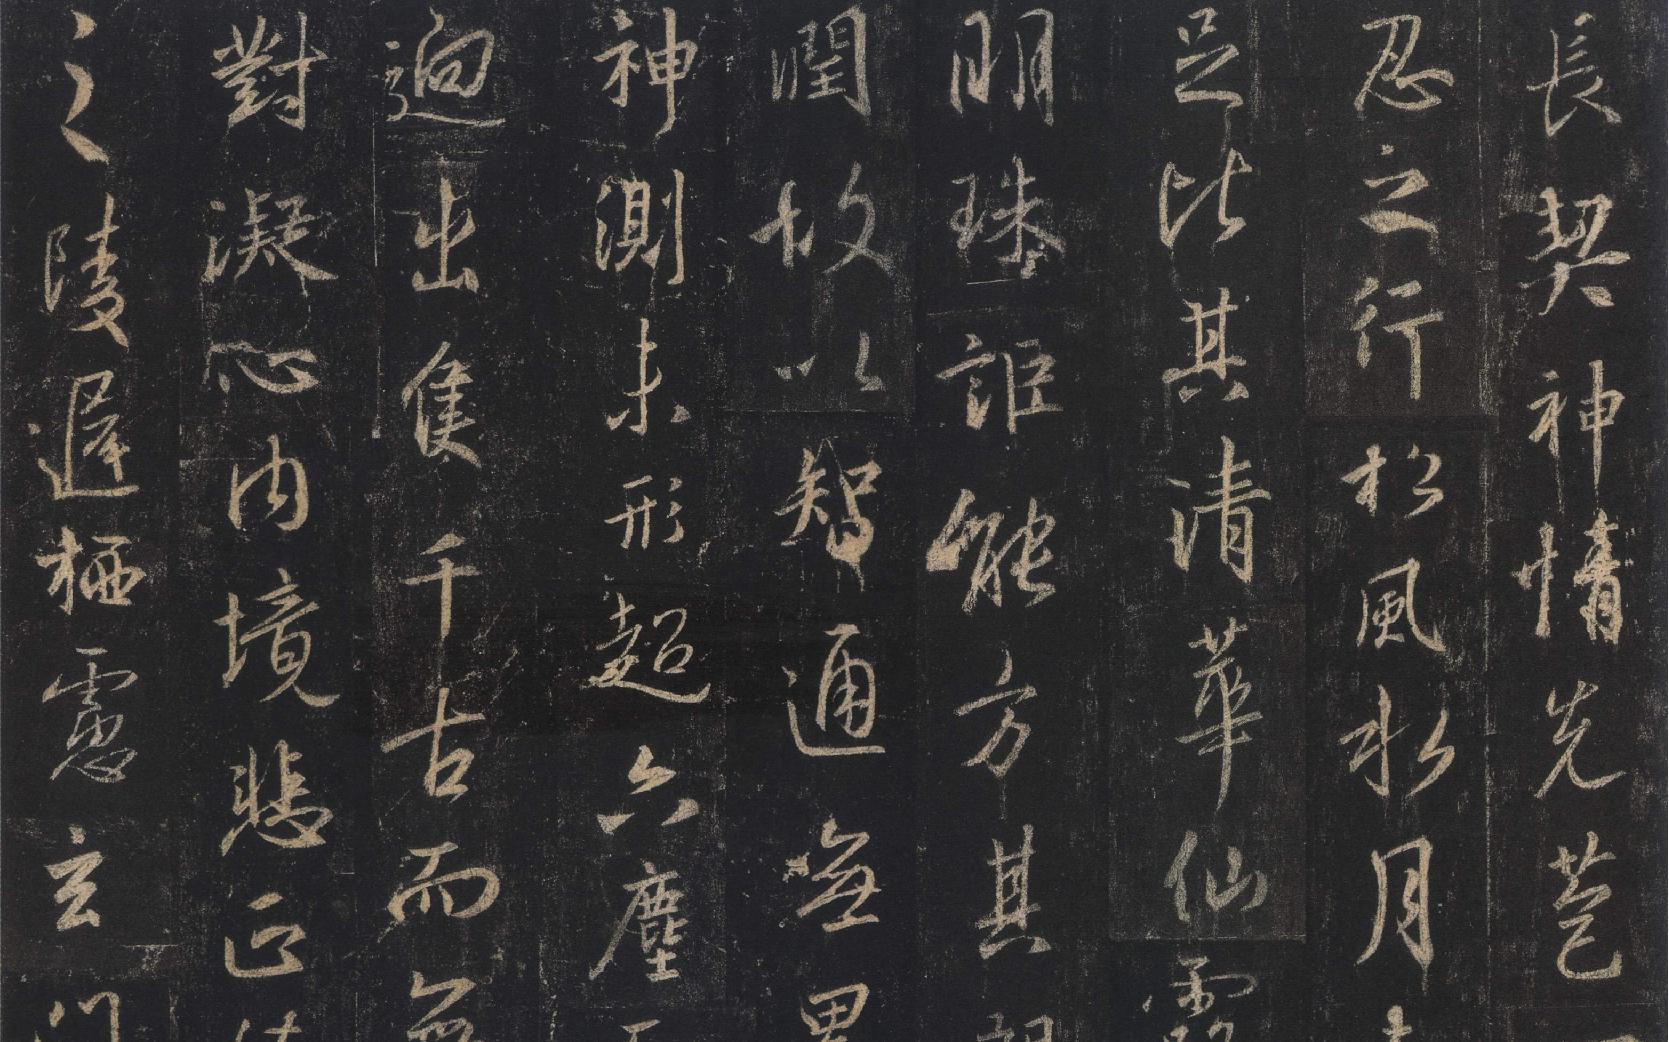 長契神情先苞
忍之行松風水月
足比其清華仙露
明珠詎能方其朗
潤故以智通無累
神測未形超六塵
迥出隻千古而無
對凝心內境悲正法
之陵遲栖慮玄門